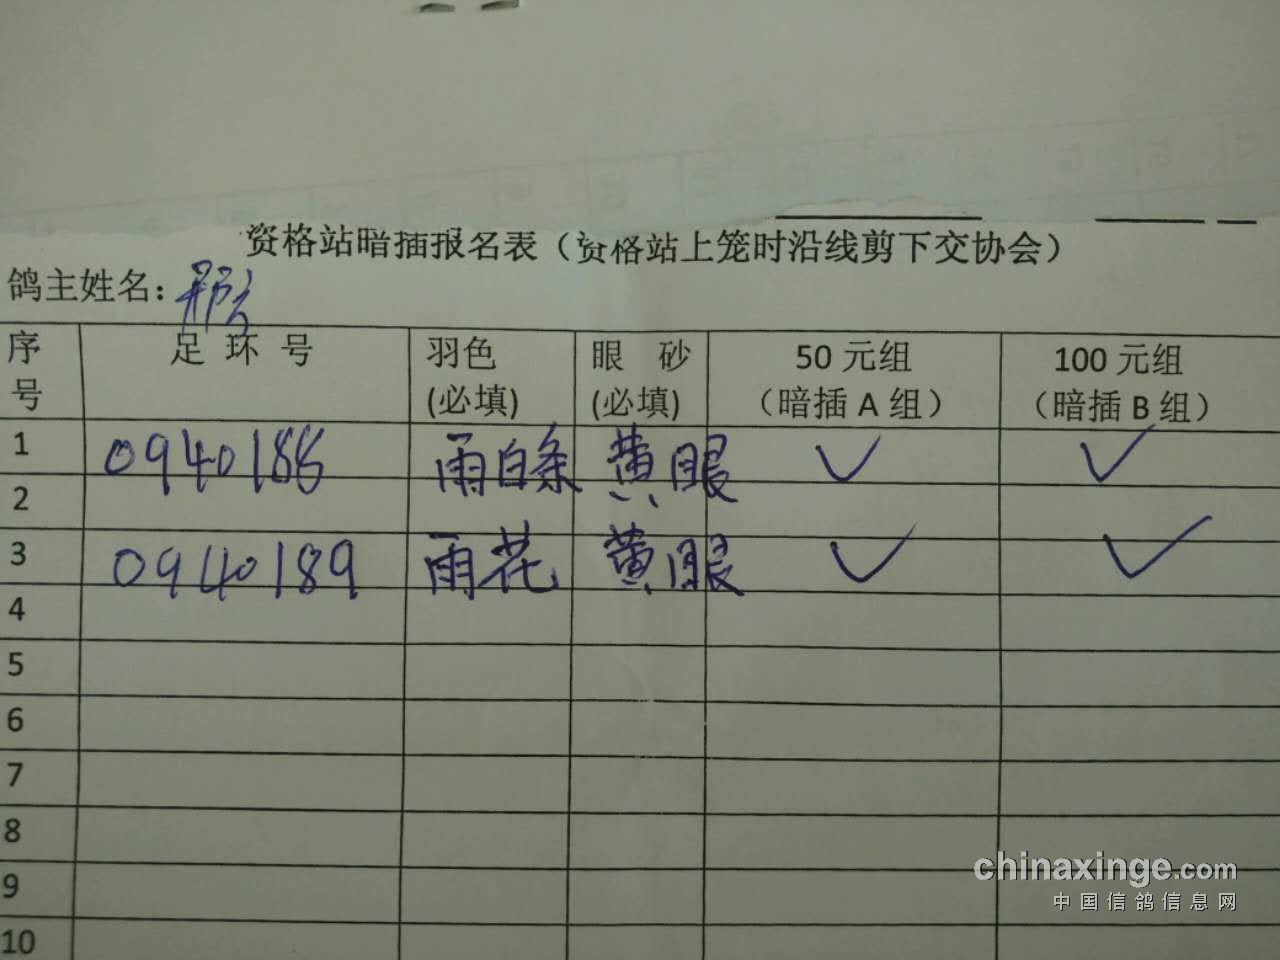 资格站暗插报名表（资格站上笼时沿线剪下交协会）
鸽主姓名：
序号 足环号 羽色(必填) 眼砂(必填) 50元组（暗插A组） 100元组（暗插B组）
1 0940188 雨白条 黄眼 ✓ ✓
2
3 0940189 雨花 黄眼 ✓ ✓
4
5
6
7
8
9
10
chinaxinge.com
中国信鸽信息网